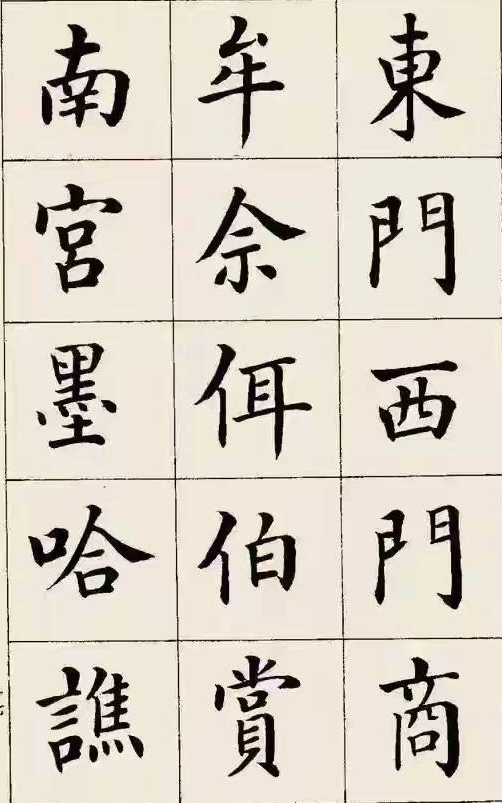 東門西門商
牟佘佴伯賞
南宮墨哈譙